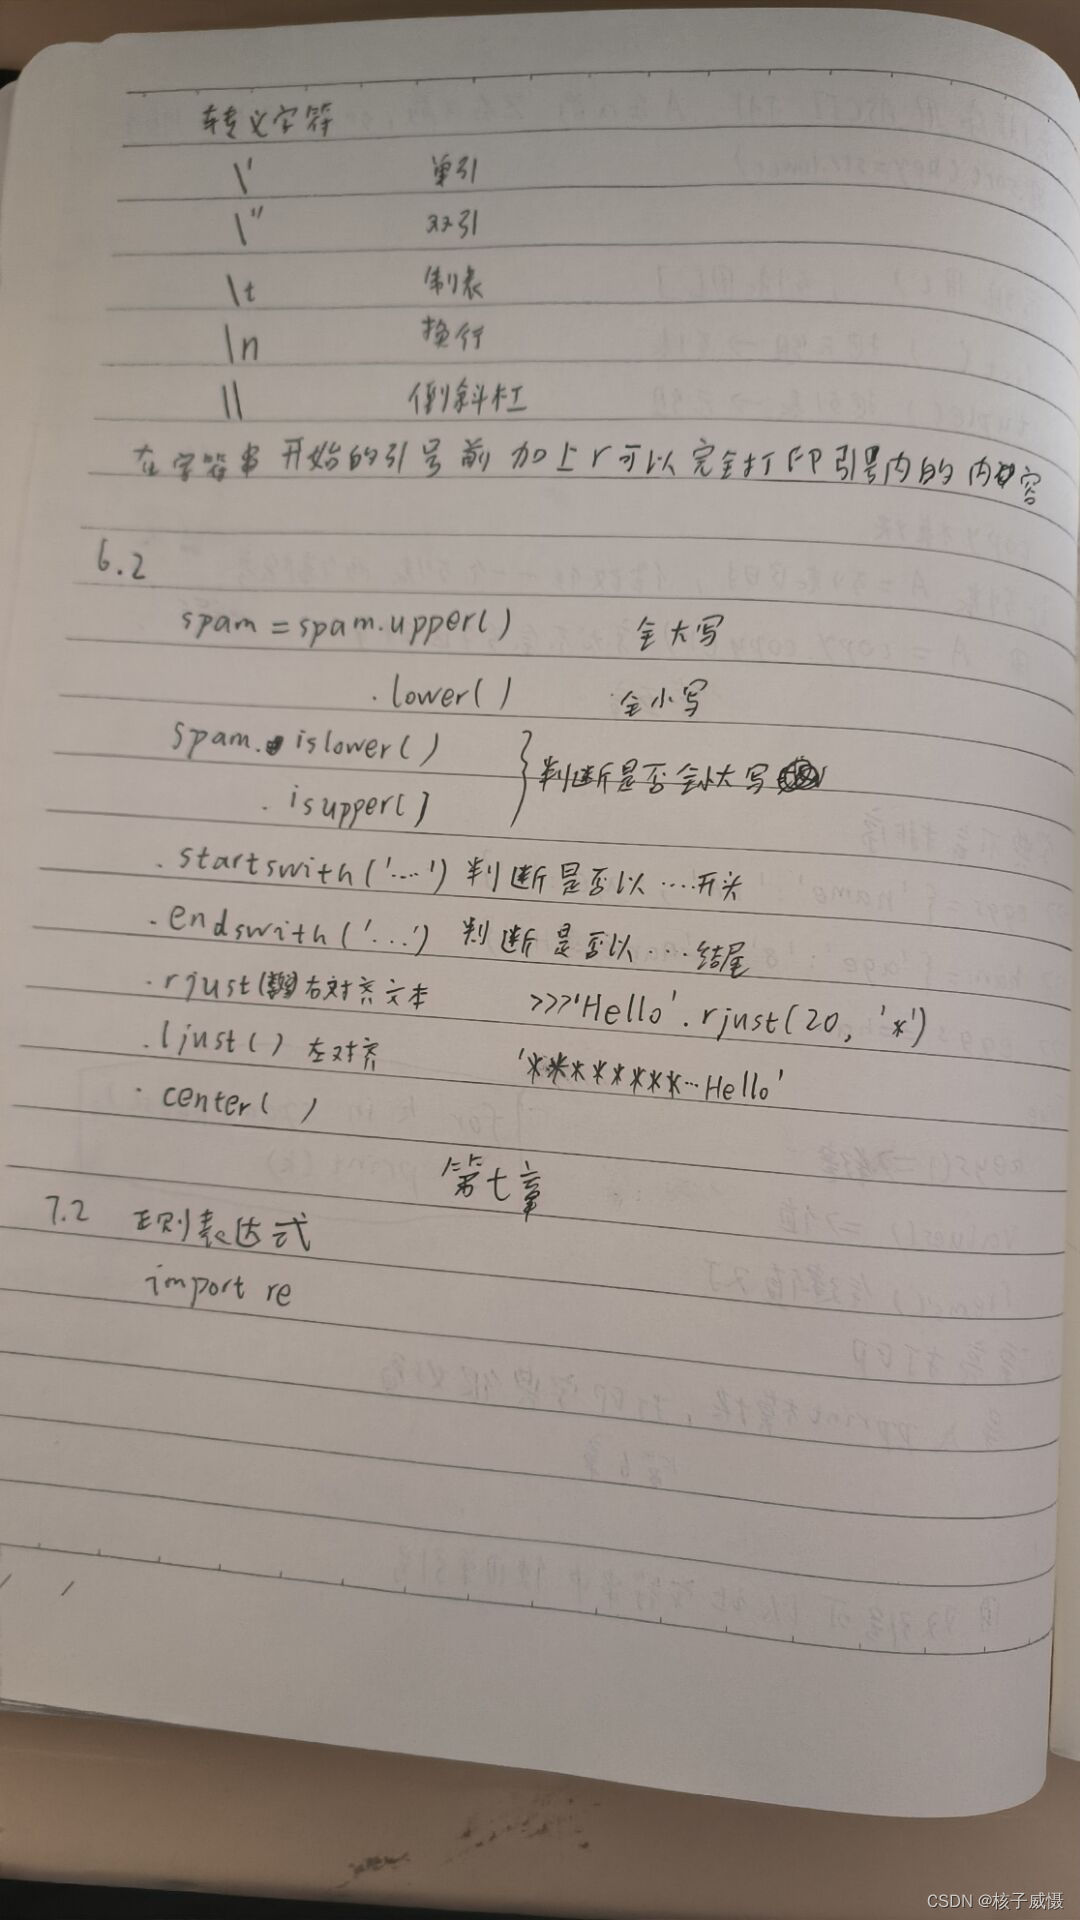 转义字符
\' 单引
\" 双引
\t 制表
\n 换行
\\ 倒斜杠
在字符串开始的引号前加上r可以完全打印引号内的内容
6.2
spam = spam.upper() 全大写
.lower() 全小写
spam. islower() } 判断是否全小大写
.isupper()
.startswith('....') 判断是否以....开头
.endswith('...') 判断是否以....结尾
.rjust( 右对齐文本 >>>'Hello'.rjust(20, '*')
.ljust() 左对齐 '*********...Hello'
.center()
第七章
7.2 正则表达式
import re
CSDN @核子威慑